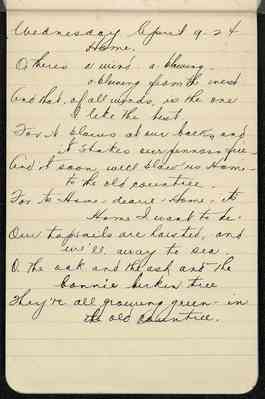 Wednesday April 9-24
Home.
O theres a wind a blowing,
a blowing from the west
And that, of all winds, is the one
I like the best
For it blows at our backs, and
it shakes our pennon free
And it soon will blow us Home-
to the old countree.
For to Home - dearie - Home - it's
Home I want to be.
Our topsails are hoisted, and
we'll away to sea.
O, the oak and the ash and the
bonnie birken tree
They're all growing green in
the old countree.